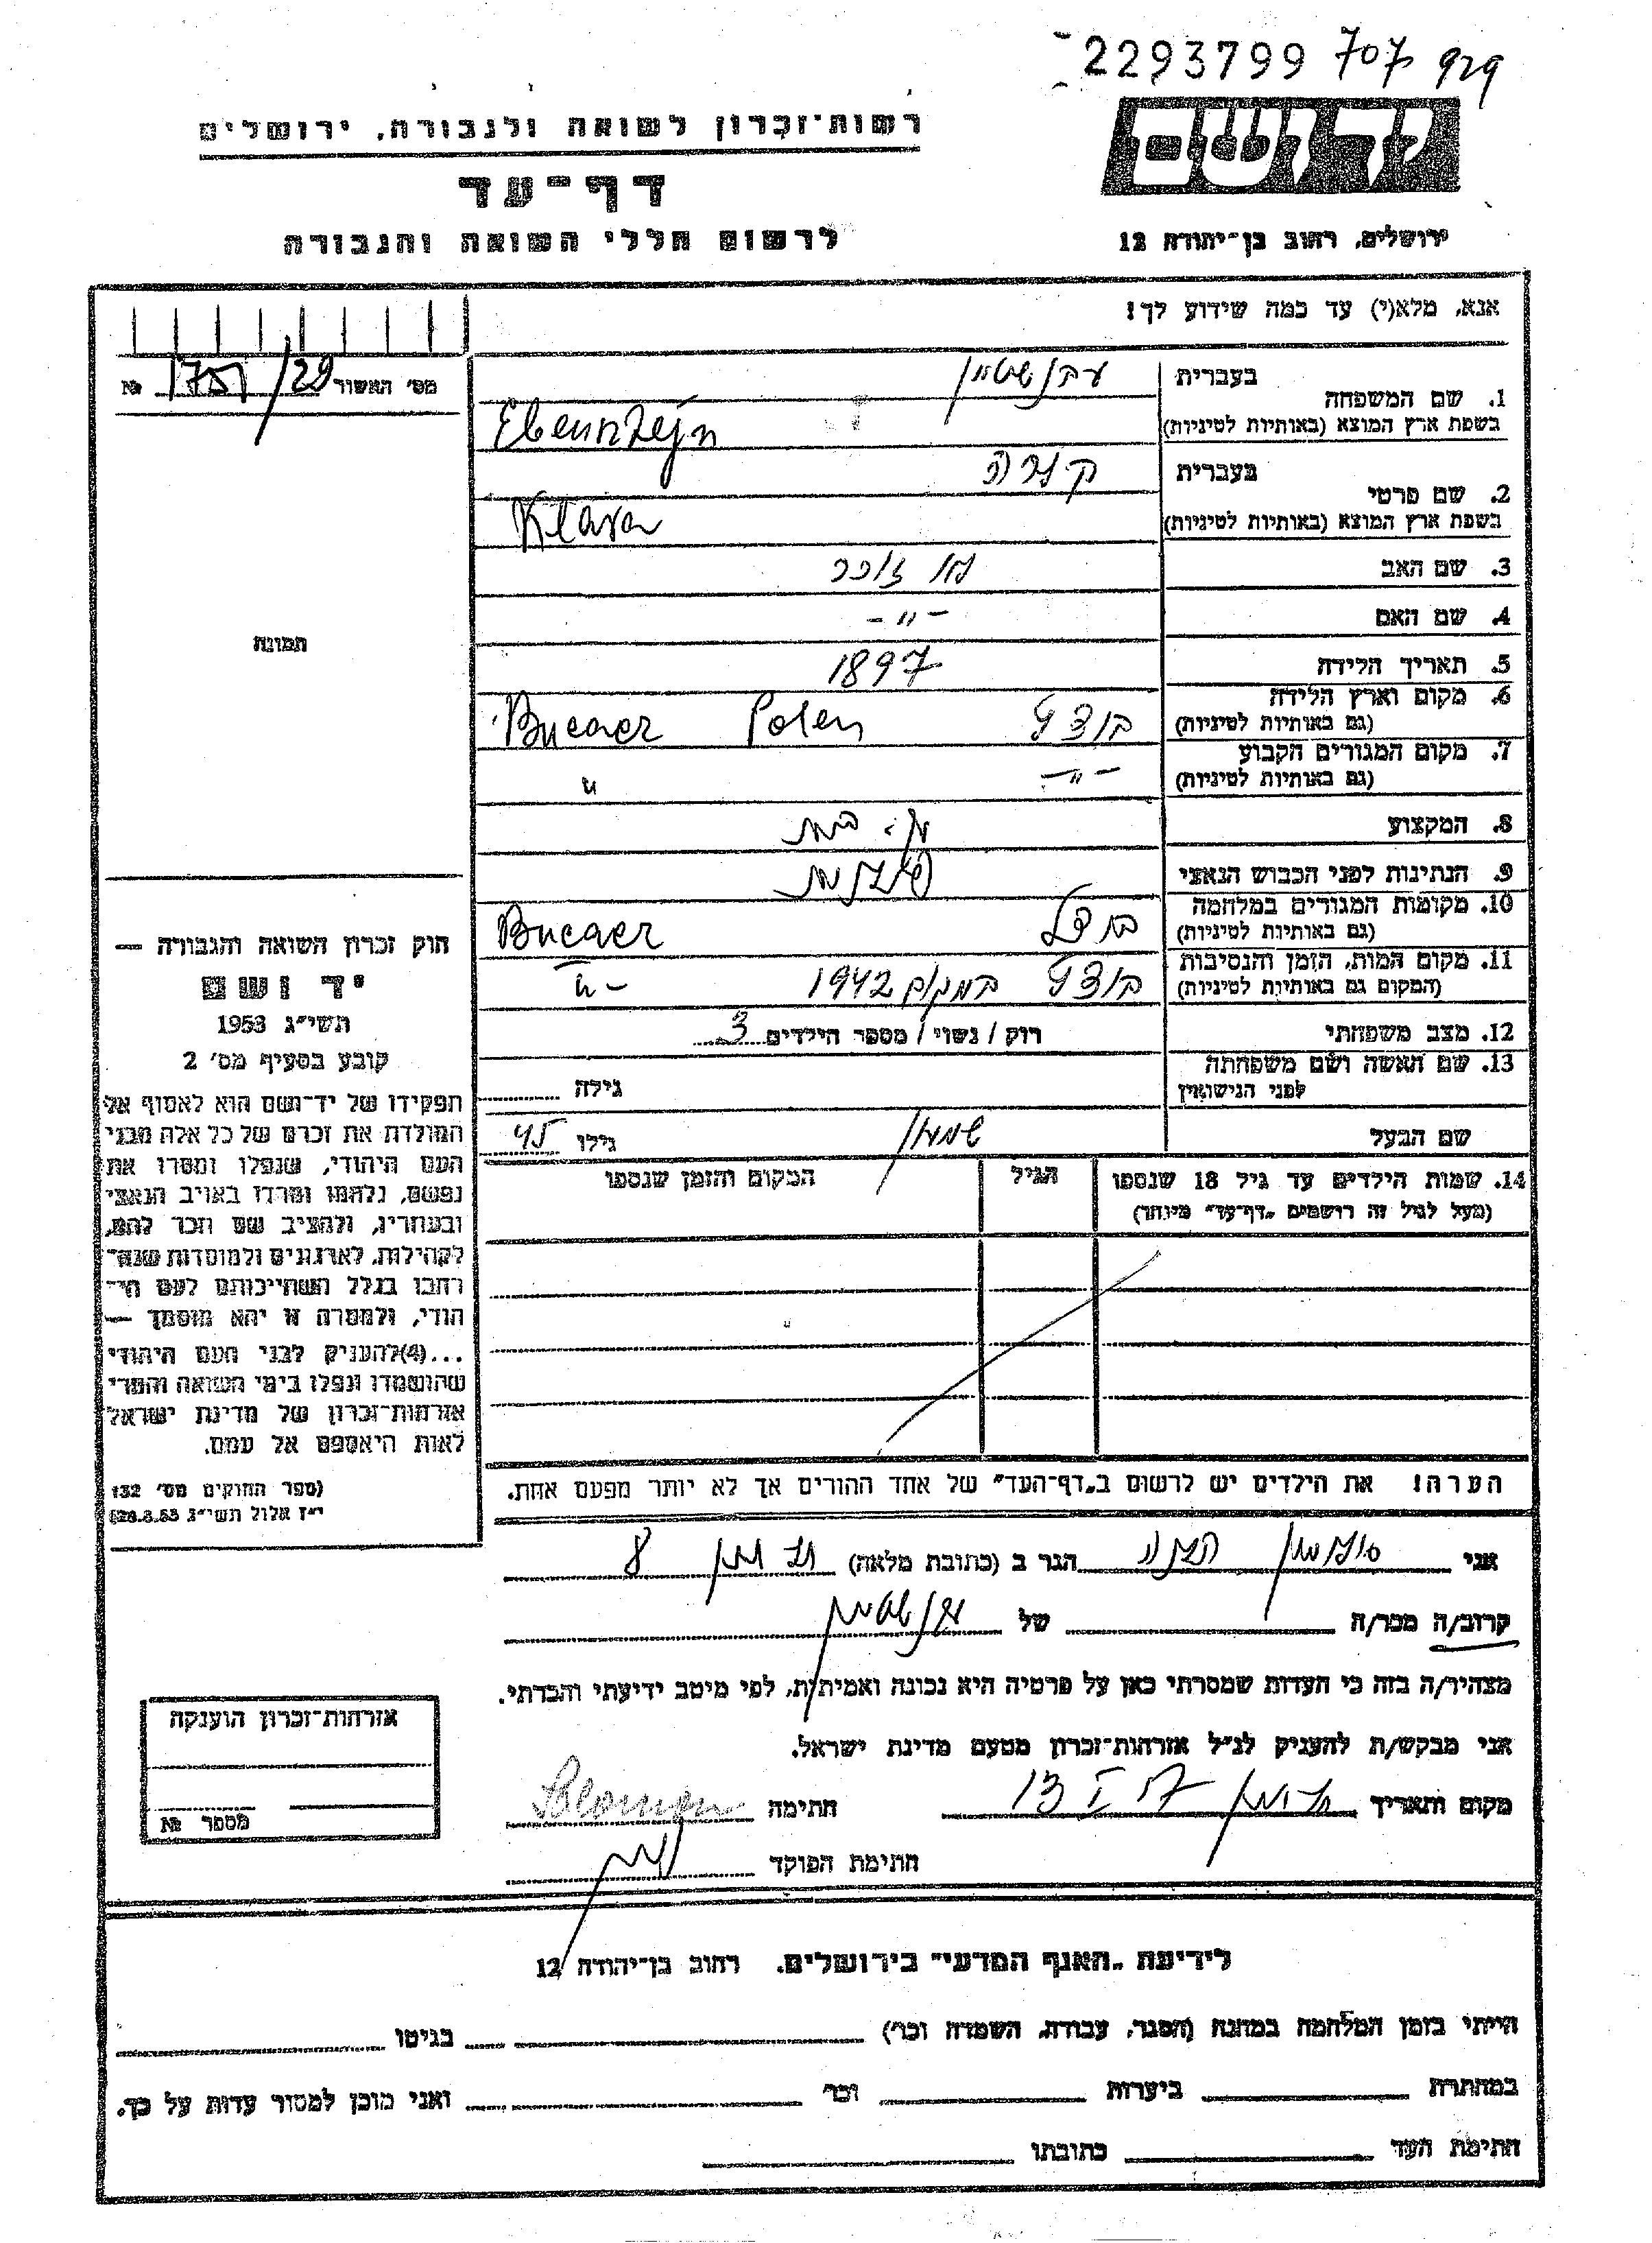 2293799 707 929
יד ושם
רשות־זכרון לשואה ולגבורה, ירושלים
דף־עד
לרשום חללי השואה והגבורה
ירושלים, רחוב בן־יהודה 12
אנא, מלא(י) עד כמה שידוע לך!
מס׳ האשור 29/ №
1. שם המשפחה
בעברית
בשפת ארץ המוצא (באותיות לטיניות)
Ebensztejn
2. שם פרטי
בעברית קלרה
בשפת ארץ המוצא (באותיות לטיניות)
Klara
3. שם האב לא זוכר
4. שם האם -״-
5. תאריך הלידה 1897
6. מקום וארץ הלידה
(גם באותיות לטיניות)
Bucacz Polen
7. מקום המגורים הקבוע
(גם באותיות לטיניות)
-״- ״
8. המקצוע עק. בית
9. הנתינות לפני הכבוש הנאצי פולנית
10. מקומות המגורים במלחמה
(גם באותיות לטיניות)
Bucacz
11. מקום המות, הזמן והנסיבות
(המקום גם באותיות לטיניות)
במקום 1942 -״-
12. מצב משפחתי רוק / נשוי / מספר הילדים 3
13. שם האשה ושם משפחתה
לפני הנישואין
גילה
שם הבעל שמעון גילו 45
14. שמות הילדים עד גיל 18 שנספו
(מעל לגיל זה רושמים „דף־עד״ מיוחד)
הגיל
המקום והזמן שנספו
הערה! את הילדים יש לרשום ב„דף־העד״ של אחד ההורים אך לא יותר מפעם אחת.
תמונה
חוק זכרון השואה והגבורה —
יד ושם
תשי״ג 1953
קובע בסעיף מס׳ 2
תפקידו של יד־ושם הוא לאסוף אל
המולדת את זכרם של כל אלה מבני
העם היהודי, שנפלו ומסרו את
נפשם, נלחמו ומרדו באויב הנאצי
ובעוזריו, ולהציב שם וזכר להם,
לקהילות, לארגונים ולמוסדות שנח־
רבו בגלל השתייכותם לעם הי־
הודי, ולמטרה זו יהא מוסמך —
...(4)להעניק לבני העם היהודי
שהושמדו ונפלו בימי השואה והמרי
אזרחות־זכרון של מדינת ישראל
לאות היאספם אל עמם.
(ספר החוקים מס׳ 132
י״ז אלול תשי״ג 28.8.53)
אני סולומון הגר ב (כתובת מלאה) 8
קרוב/ה מכר/ה של
מצהיר/ה בזה כי העדות שמסרתי כאן על פרטיה היא נכונה ואמיתית, לפי מיטב ידיעתי והכרתי.
אני מבקש/ת להעניק לנ״ל אזרחות־זכרון מטעם מדינת ישראל.
מקום ותאריך 13 I 57 חתימה Solomon
חתימת הפוקד
אזרחות־זכרון הוענקה
מספר №
לידיעת „האגף המדעי״ בירושלים, רחוב בן־יהודה 12
הייתי בזמן המלחמה במחנה (הסגר, עבודה, השמדה וכו׳) בגיטו
במחתרת ביערות וכו׳ ואני מוכן למסור עדות על כך.
חתימת העד כתובתו